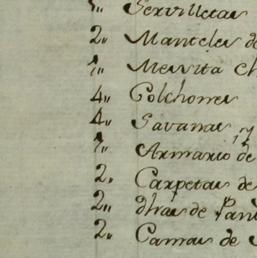 1„ Servilletas
2„ Manteles de
1„ Mesita ch
4„ Colchones
4„ Savanas, y
1„ Armario de
2. Carpetas de
2„ dhas de
2. Camas de